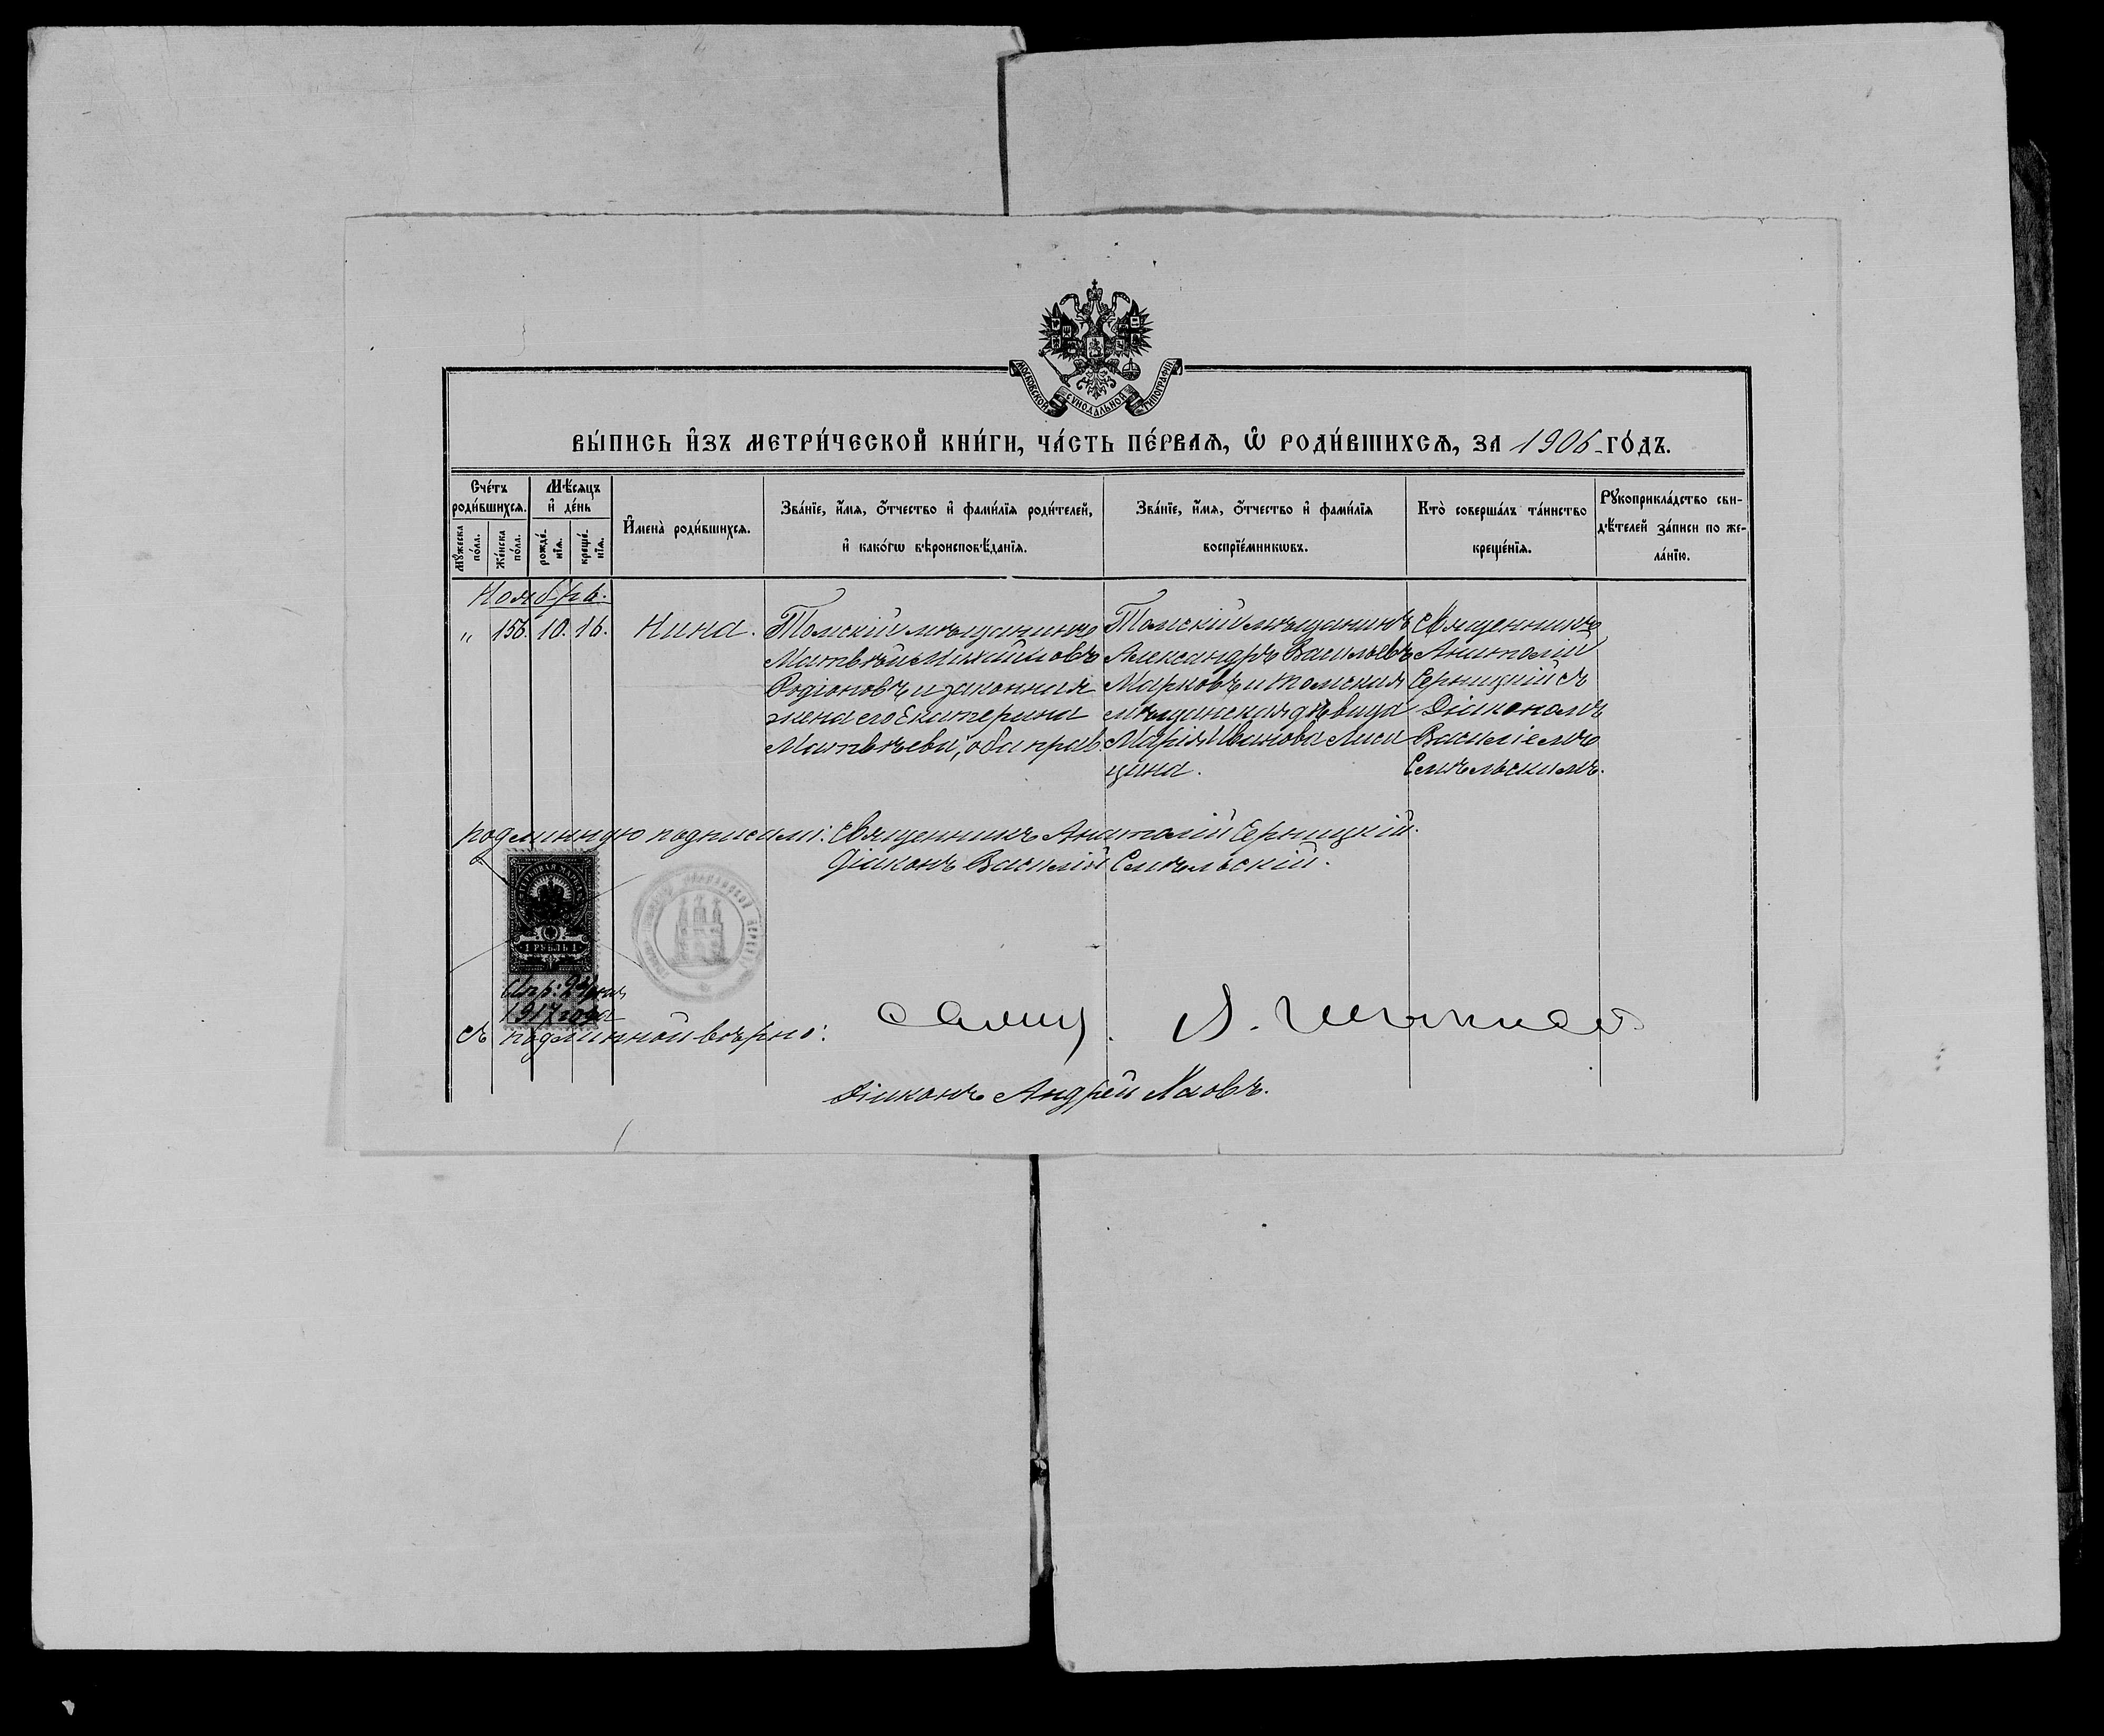 МОСКОВСКОЙ СУНОДАЛЬНОЙ ТИПОГРАФІИ
ВЫ́ПИСЬ И҆ЗЪ МЕТРИ́ЧЕСКОЙ КНИ́ГИ, ЧА́СТЬ ПЕ́РВАѦ, Ѡ҆ РОДИ́ВШИХСѦ, ЗА 1906 ГО́ДЪ.
Сче́тъ роди́вшихсѧ.
Мꙋ́жеска по́ла.
Же́нска по́ла.
Мѣ́сѧцъ и҆ де́нь
рожде́нїѧ.
креще́нїѧ.
И҆мена̀ роди́вшихсѧ.
Зва́нїе, и҆́мѧ, ѻ҆́тчество и҆ фами́лїѧ роди́телей,
и҆ како́гѡ вѣроисповѣ́данїѧ.
Зва́нїе, и҆́мѧ, ѻ҆́тчество и҆ фами́лїѧ
воспрїе́мникѡвъ.
Кто̀ соверша́лъ та́инство
креще́нїѧ.
Рꙋкоприкла́дство сви-
дѣ́телей за́писи по же-
ла́нїю.
Ноябрь.
„ 156. 10. 16.
Нина.
Томскій мѣщанинъ
Матвѣй Михайловъ
Родіоновъ и законная
жена его Екатерина
Матвѣева, оба прав.
Томскій мѣщанинъ
Александръ Васильевъ
Марковъ и томская
мѣщанская дѣвица
Марія Иванова Лиси
цина.
Священникъ
Анатолій
Серницкій съ
Діакономъ
Василіемъ
Смѣльскимъ.
подлинную подписали: Священникъ Анатолій Серницкій.
Діаконъ Василій Смѣльскій.
ГЕРБОВАЯ МАРКА
1 РУБЛЬ 1
1917 года
съ подлинной вѣрно:
Діаконъ Андрей